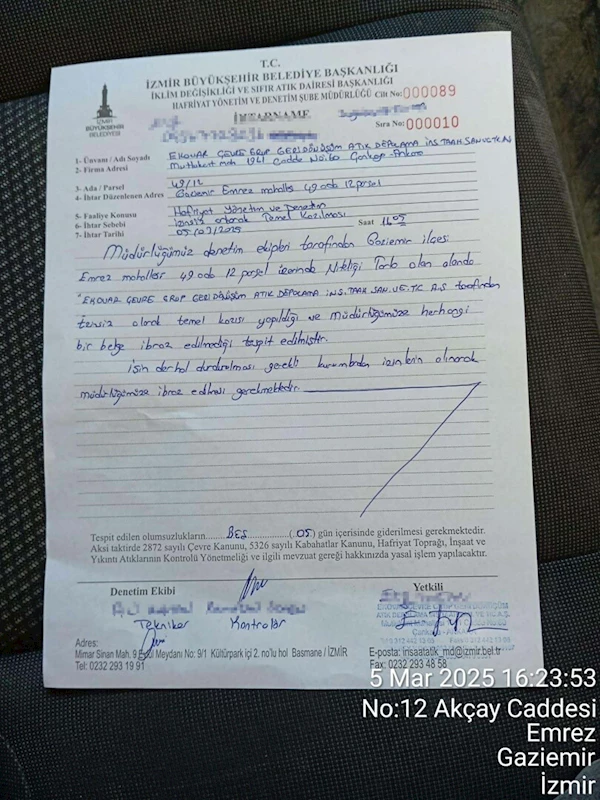 T.C.
İZMİR BÜYÜKŞEHİR BELEDİYE BAŞKANLIĞI
İKLİM DEĞİŞİKLİĞİ VE SIFIR ATIK DAİRESİ BAŞKANLIĞI
HAFRİYAT YÖNETİM VE DENETİM ŞUBE MÜDÜRLÜĞÜ Cilt No: 000089
İHTARNAME
Sıra No: 000010
İZMİR
BÜYÜKŞEHİR
BELEDİYESİ
1- Ünvanı / Adı Soyadı EKOVAR ÇEVRE GRUP GERİ DÖNÜŞÜM ATIK DEPOLAMA İNŞ. TAAH. SAN. VE TİC. AŞ
2- Firma Adresi Mutlukent mah 1961 Cadde No:60 Çankaya-Ankara
3- Ada / Parsel 49/12
4- İhtar Düzenlenen Adres Gaziemir Emrez mahallesi 49 ada 12 parsel
5- Faaliye Konusu Hafriyat Yönetim ve Denetim
6- İhtar Sebebi İzinsiz olarak Temel Kazılması
7- İhtar Tarihi 05/03/2025 Saat 16.05
Müdürlüğümüz denetim ekipleri tarafından Gaziemir ilçesi
Emrez mahallesi 49 ada 12 parsel üzerinde Niteliği Tarla olan alanda
"EKOVAR ÇEVRE GRUP GERİ DÖNÜŞÜM ATIK DEPOLAMA İNŞ. TAAH. SAN. VE. TİC A.Ş tarafından
izinsiz olarak temel kazısı yapıldığı ve Müdürlüğümüze herhangi
bir belge ibraz edilmediği tespit edilmiştir.
İşin derhal durdurulması gerekli kurumlardan izinlerin alınarak
müdürlüğümüze ibraz edilmesi gerekmektedir.
Tespit edilen olumsuzlukların......BEŞ......(.05.) gün içerisinde giderilmesi gerekmektedir.
Aksi taktirde 2872 sayılı Çevre Kanunu, 5326 sayılı Kabahatlar Kanunu, Hafriyat Toprağı, İnşaat ve
Yıkıntı Atıklarının Kontrolü Yönetmeliği ve ilgili mevzuat gereği hakkınızda yasal işlem yapılacaktır.
Denetim Ekibi Yetkili
Tekniker Kontrolör
Adres:
Mimar Sinan Mah. 9 Eylül Meydanı No: 9/1 Kültürpark içi 2. no'lu hol Basmane / İZMİR
Tel: 0232 293 19 91
E-posta: insaatatik_md@izmir.bel.tr
Fax: 0232 293 48 58
5 Mar 2025 16:23:53
No:12 Akçay Caddesi
Emrez
Gaziemir
İzmir